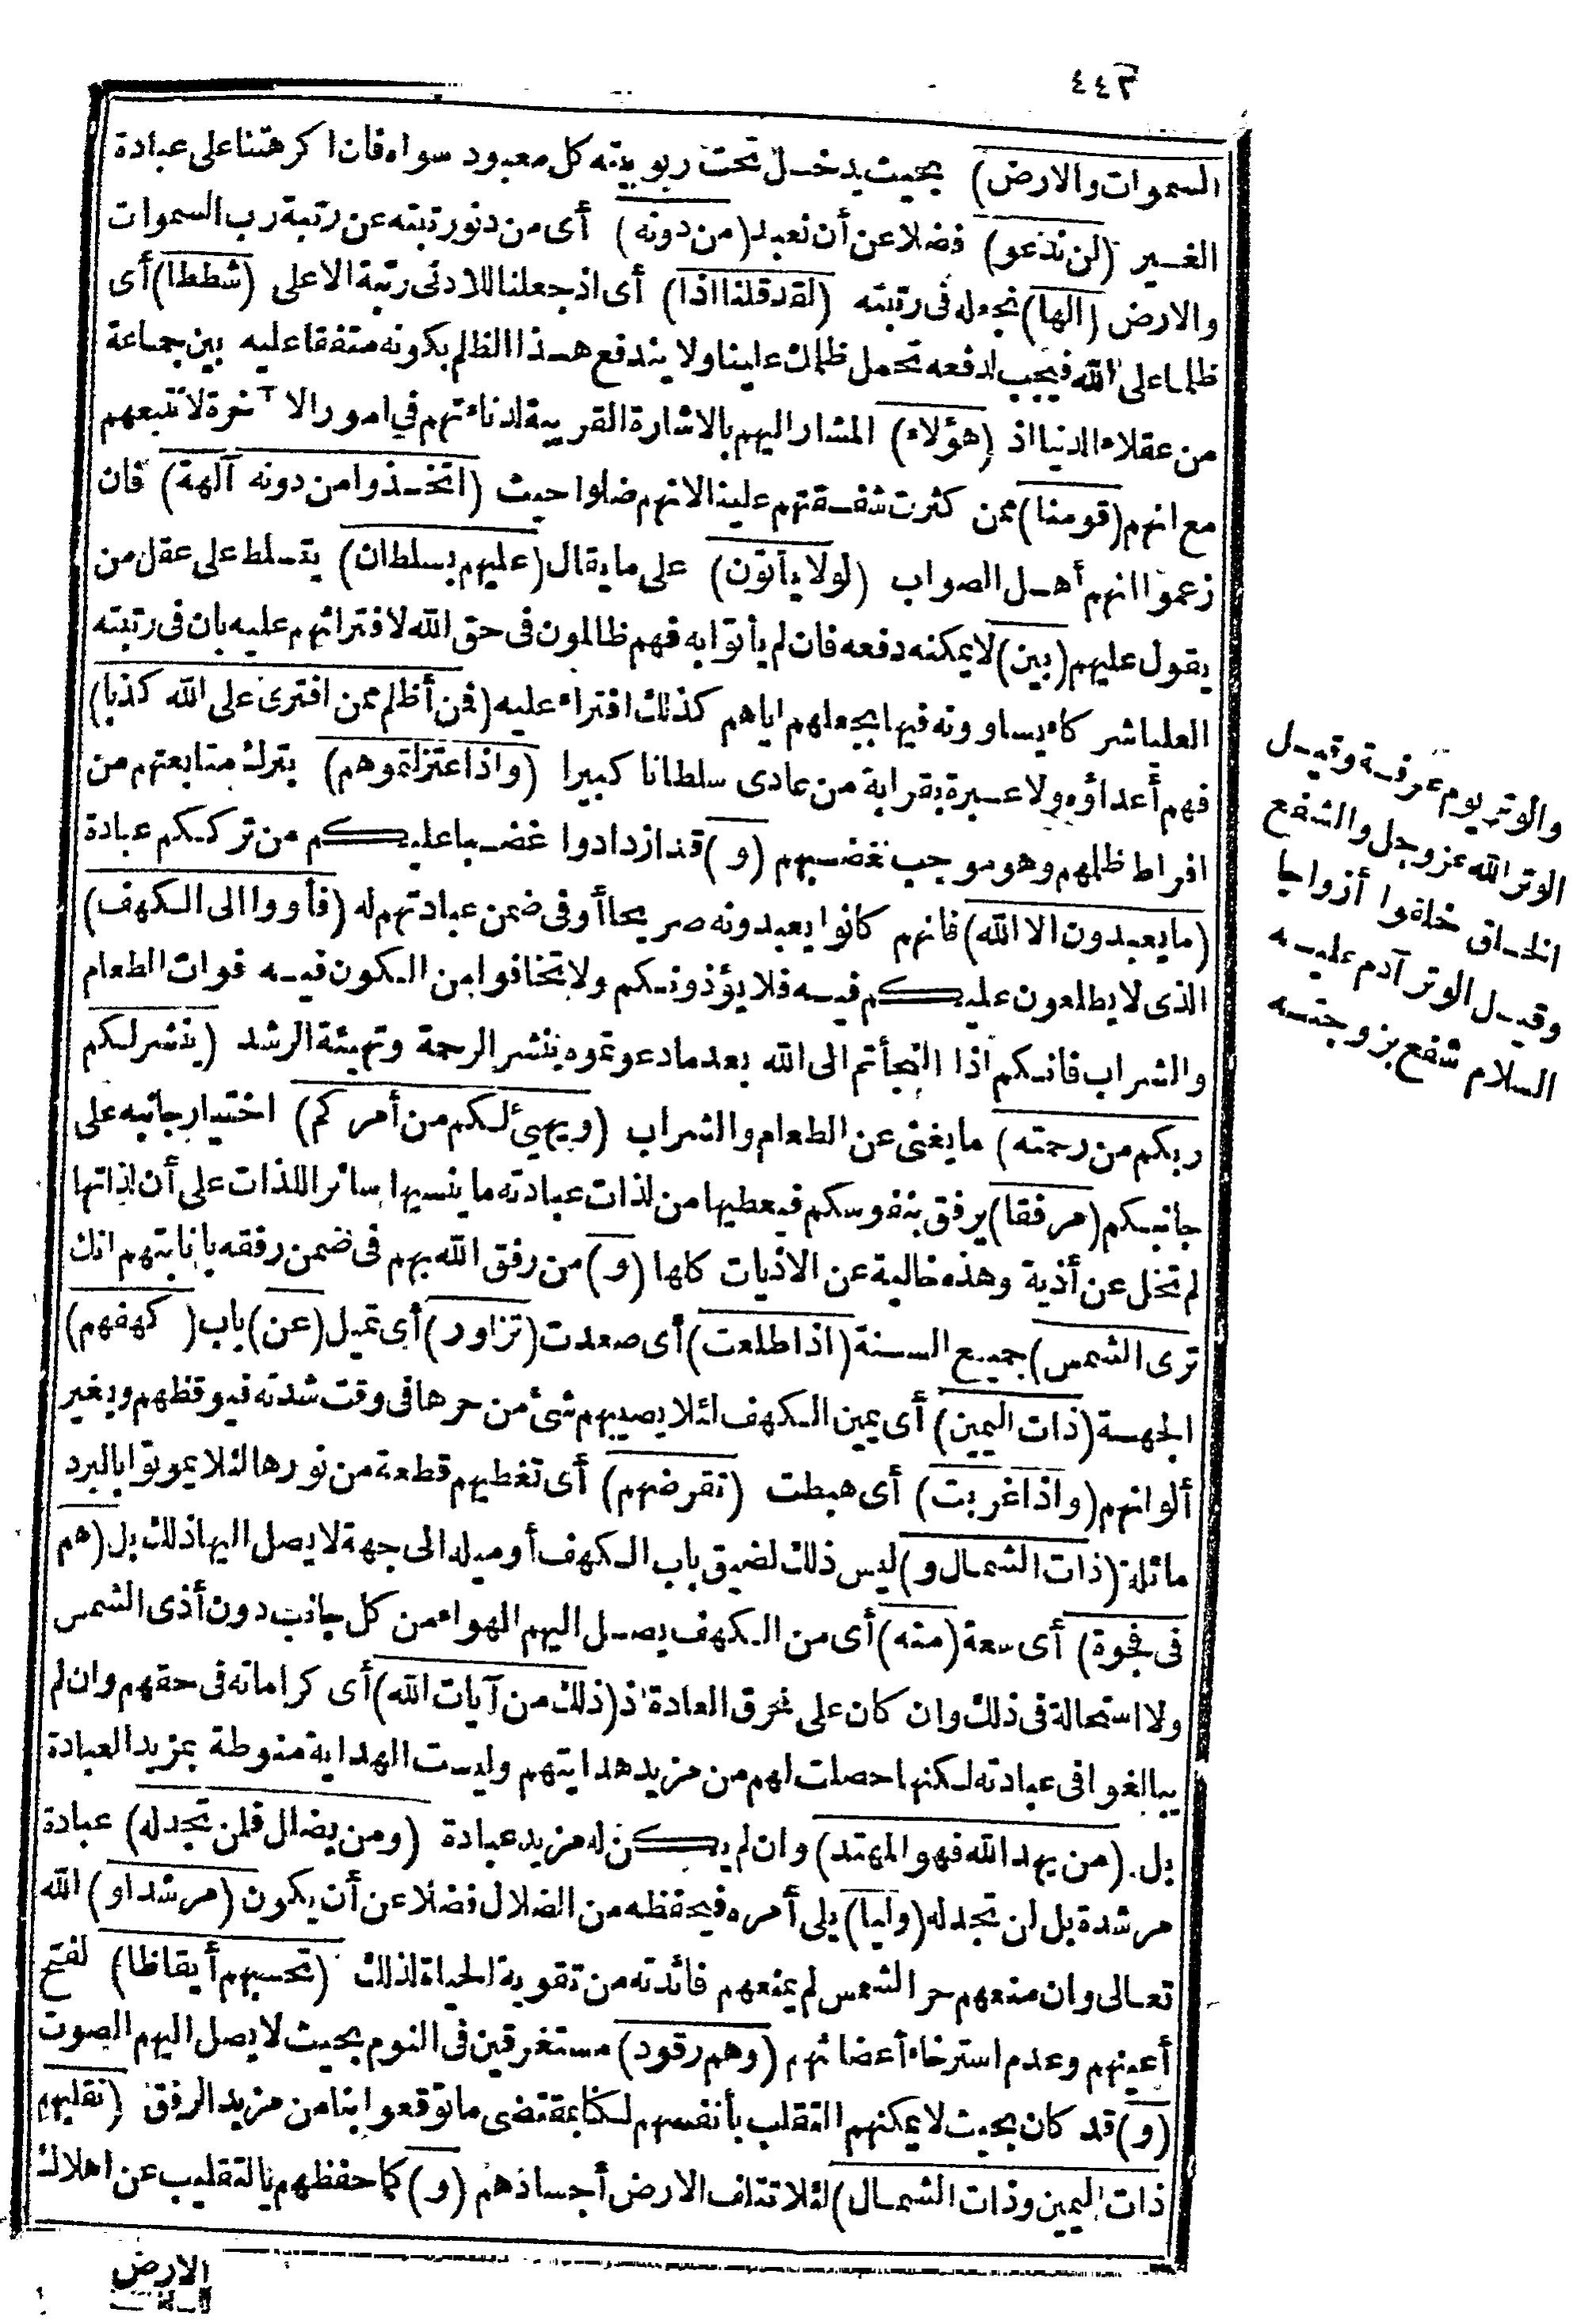 ٤٤٣
السموات والارض) بحيث يدخل تحت ربوبيته كل معبود سواه فان اكرهتنا على عبادة
الغير (لن ندعو) فضلا عن أن نعبد (من دونه) أى من دنو رتبته عن رتبة رب السموات
والارض (الها) نجعله فى رتبته (لقد قلنا اذا) أى اذ جعلنا للادنى رتبة الاعلى (شططا) أى
ظلما على الله فيجب لدفعه تحمل ظلمك علينا ولا يندفع هذا الظلم بكونه متفقا عليه بين جماعة
من عقلاء الدنيا اذ (هؤلاء) المشار اليهم بالاشارة القريبة لدناءتهم في امور الآخرة لا نتبعهم
مع انهم (قومنا) ممن كثرت شفقتهم علينا لانهم ضلوا حيث (اتخذوا من دونه آلهة) فان
زعموا انهم أهل الصواب (لولا يأتون) على ما يقال (عليهم بسلطان) يتسلط على عقل من
يقول عليهم (بين) لا يمكنه دفعه فان لم يأتوا به فهم ظالمون فى حق الله لافترائهم عليه بان فى رتبته
العليا شركاء يساوونه فيها بجعلهم اياهم كذلك افتراء عليه (فمن أظلم ممن افترى على الله كذبا)
فهم أعداؤه ولا عبرة بقرابة من عادى سلطانا كبيرا (واذ اعتزلتموهم) بترك متابعتهم من
افراط ظلمهم وهو موجب بغضهم (و) قد ازدادوا غضبا عليكم من ترككم عبادة
(ما يعبدون الا الله) فانهم كانوا يعبدونه صريحا أو فى ضمن عبادتهم له (فأووا الى الكهف)
الذى لا يطلعون عليكم فيه فلا يؤذونكم ولا تخافوا من الكون فيه فوات الطعام
والشراب فانكم اذا التجأتم الى الله بعد ما دعوتموه بنشر الرحمة وتهيئة الرشد (ينشر لكم
ربكم من رحمته) ما يغنى عن الطعام والشراب (ويهيئ لكم من أمركم) اختيار جانبه على
جانبكم (مرفقا) يرفق بنفوسكم فيعطيها من لذات عبادته ما ينسيها سائر اللذات على أن لذاتها
لم تخل عن أذية وهذه خالية عن الاذيات كلها (و) من رفق الله بهم فى ضمن رفقه بانابتهم انك
ترى الشمس) جميع السنة (اذا طلعت) أى صعدت (تزاور) أى تميل (عن) باب (كهفهم)
الجهة (ذات اليمين) أى يمين الكهف لئلا يصيبهم شئ من حرها فى وقت شدته فيوقظهم ويغير
ألوانهم (واذا غربت) أى هبطت (تقرضهم) أى تغطيهم قطعة من نورها لئلا يموتوا بالبرد
مائلة (ذات الشمال و) ليس ذلك لضيق باب الكهف أو ميله الى جهة لا يصل اليها ذلك بل (هم
فى فجوة) أى سعة (منه) أى من الكهف يصل اليهم الهواء من كل جانب دون أذى الشمس
ولا استحالة فى ذلك وان كان على خرق العادة اذ (ذلك من آيات الله) أى كراماته فى حقهم وان لم
يبالغوا فى عبادته لكنها حصلت لهم من مزيد هدايتهم وليست الهداية منوطة بمزيد العبادة
بل (من يهد الله فهو المهتد) وان لم يكن له مزيد عبادة (ومن يضلل فلن تجد له) عبادة
مرشدة بل لن تجد له (وليا) يلى أمره فيحفظه من الضلال فضلا عن أن يكون (مرشدا و) الله
تعالى وان منعهم حر الشمس لم يمنعهم فائدته من تقوية الحياة لذلك (تحسبهم أيقاظا) لفتح
أعينهم وعدم استرخاء أعضائهم (وهم رقود) مستغرقين فى النوم بحيث لا يصل اليهم الصوت
(و) قد كان بحيث لا يمكنهم التقلب بأنفسهم لكنا بمقتضى ما توقعوا بنا من مزيد الرفق (نقلبهم
ذات اليمين وذات الشمال) لئلا تتلف الارض أجسادهم (و) كما حفظهم بالتقليب عن اهلاك
الارض
والوتر يوم عرفة وقيل
الوتر الله عز وجل والشفع
الخلق خلقوا أزواجا
وقيل الوتر آدم عليه
السلام شفع بزوجته